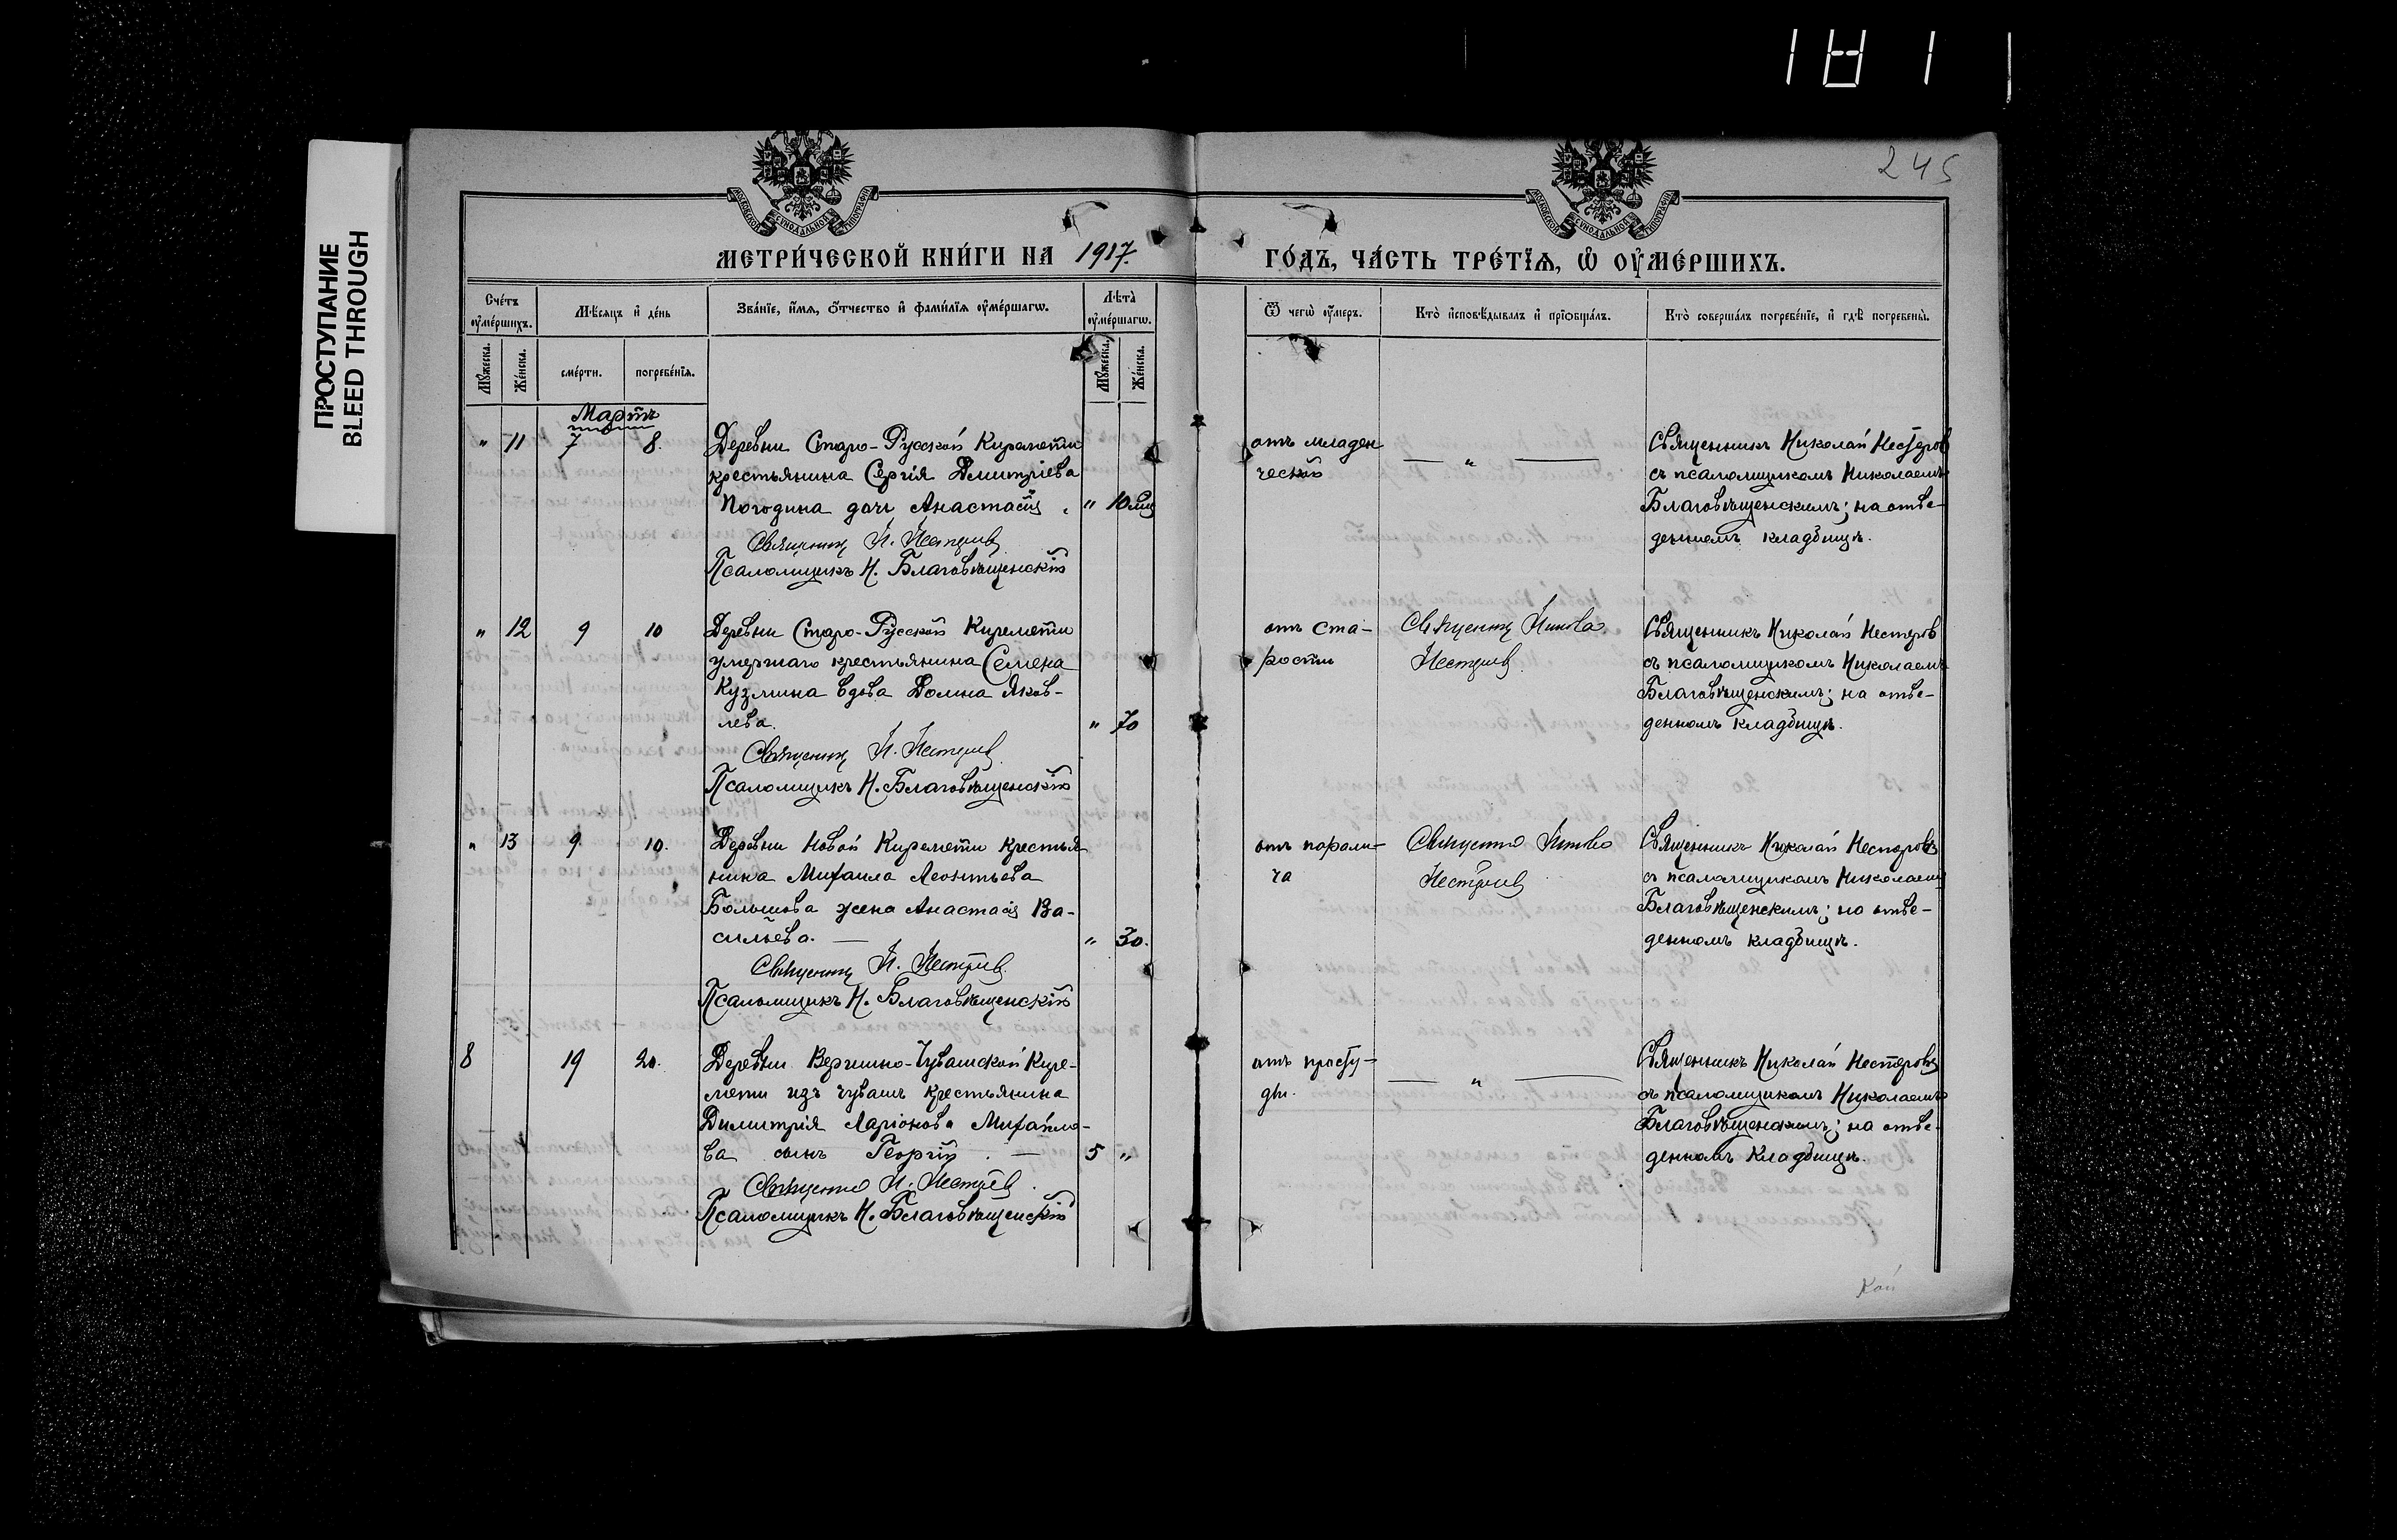 181
245
ПРОСТУПАНИЕ
BLEED THROUGH
МОСКОВСКОЙ СѴНОДАЛЬНОЙ ТИПОГРАФІИ
МОСКОВСКОЙ СѴНОДАЛЬНОЙ ТИПОГРАФІИ
МЕТРИ́ЧЕСКОЙ КНИ́ГИ НА 1917.
ГО́ДЪ, ЧА́СТЬ ТРЕ́ТЇѦ, Ѡ҆ ОУ҆МЕ́РШИХЪ.
Сче́тъ оу҆ме́ршихъ.
Мꙋ́жеска.
Же́нска.
Мѣ́сяцъ и҆ де́нь
сме́рти.
погребе́нїѧ.
Зва́нїе, и҆́мѧ, ѻ҆́тчество и҆ фамилїѧ оу҆ме́ршагѡ.
Лѣ́та оу҆ме́ршагѡ.
Мꙋ́жеска.
Же́нска.
Ѿ чегѡ̀ оу҆́меръ.
Кто̀ и҆сповѣ́дывалъ и҆ прїѡбща́лъ.
Кто̀ соверша́лъ погребе́нїе, и҆ гдѣ̀ погребены̀.
Мартъ
" 11 7 8.
Деревни Старо-Русской Киремети
крестьянина Сергія Димитріева
Погодина дочь Анастасія. " 10 мц
Священникъ Н. Нестеровъ
Псаломщикъ Н. Благовѣщенскій
отъ младен
ческой
— " —
Священникъ Николай Нестеров
съ псаломщикомъ Николаемъ
Благовѣщенскимъ; на отве-
денномъ кладбищѣ.
" 12 9 10
Деревни Старо-Русской Киремети
умершаго крестьянина Семена
Кузмина вдова Домна Яков-
лева. " 70
Священникъ Н. Нестеровъ
Псаломщикъ Н. Благовѣщенскій
отъ ста-
рости
Священникъ Никола
Нестеровъ.
Священникъ Николай Нестеров
съ псаломщикомъ Николаемъ
Благовѣщенскимъ; на отве-
денномъ кладбищѣ.
" 13 9. 10.
Деревни Новой Киремети крестья-
нина Михаила Леонтьева
Большова жена Анастасія Ва-
сильева. — " 30.
Священникъ Н. Нестеровъ.
Псаломщикъ Н. Благовѣщенскій
отъ парали-
ча
Священникъ Николай
Нестеровъ
Священникъ Николай Нестеровъ
съ псаломщикомъ Николаемъ
Благовѣщенскимъ; на отве-
денномъ кладбищѣ.
8 19 20.
Деревни Вершино-Чувашской Кире-
мети изъ чувашъ крестьянина
Димитрія Ларіонова Михайло-
ва сынъ Георгій. — 5 "
Священникъ Н. Нестеровъ.
Псаломщикъ Н. Благовѣщенскій
отъ просту-
ды.
— " —
Священникъ Николай Нестеровъ
съ псаломщикомъ Николаемъ
Благовѣщенскимъ; на отве-
денномъ кладбищѣ.